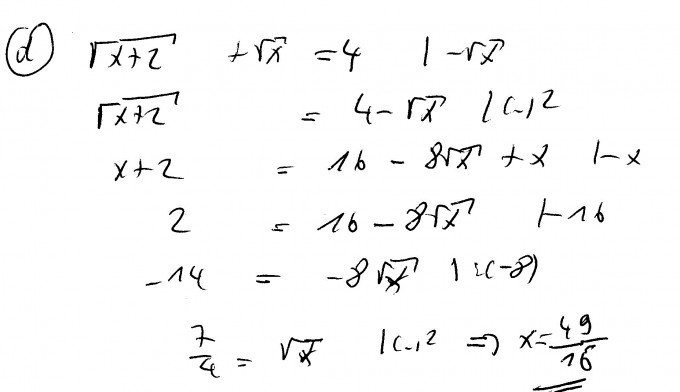 d) √(x+2) + √x = 4 | -√x
√(x+2) = 4 - √x | (...)²
x+2 = 16 - 8√x + x | -x
2 = 16 - 8√x | -16
-14 = -8√x | :(-8)
7/4 = √x | (...)² => x = 49/16